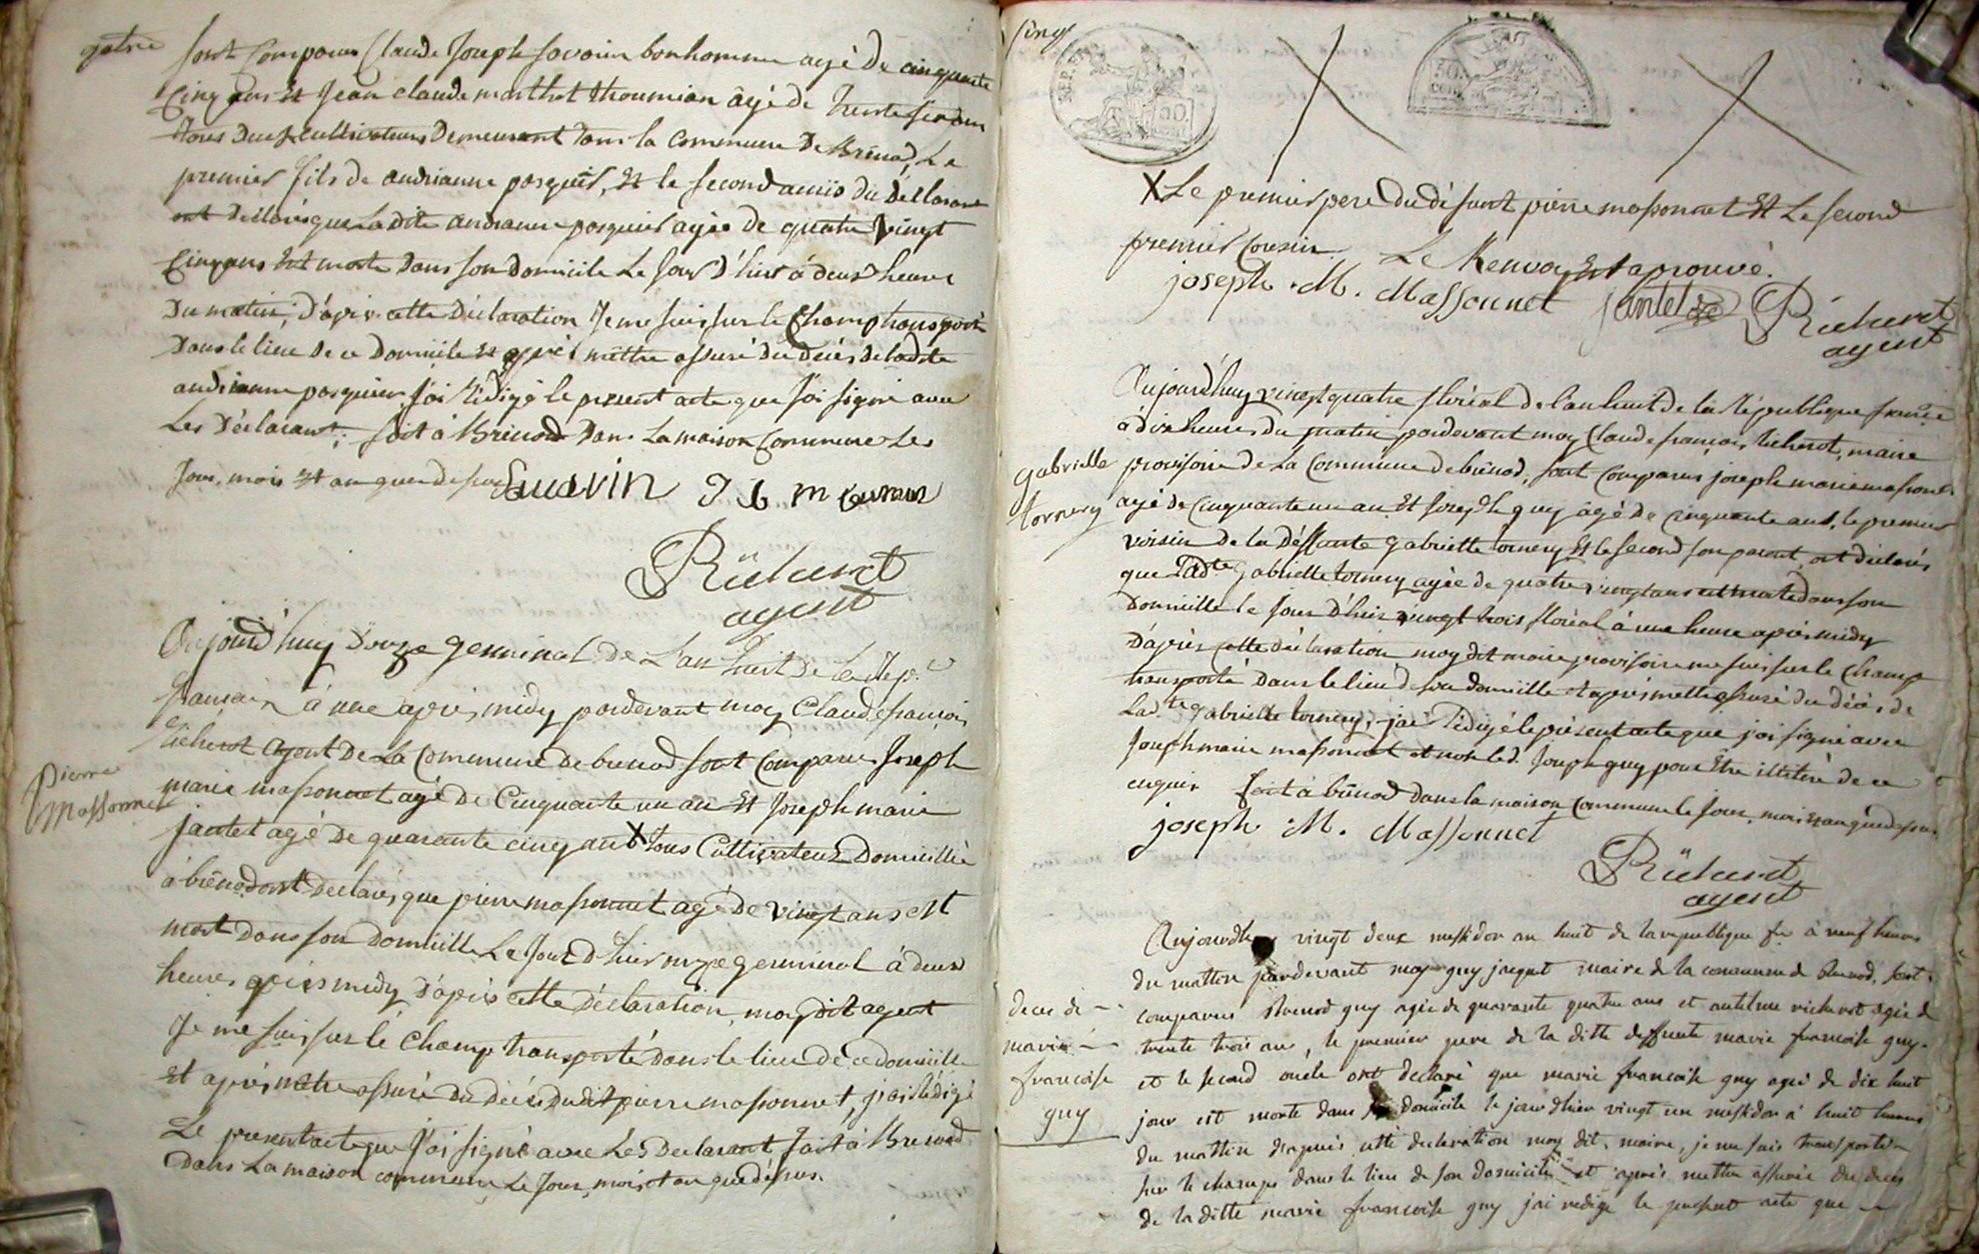 quatre
sont comparu Claude Joseph Savorin bonhomme agé de cinquante
Cinq ans Et Jean claude marthot âgé de trente
tous deux cultivateurs Demeurant dans la commune De Brénod, Le
premier fils de andrianne pasquier, Et le second amis du déclarant
ont déclarés que La dite andrianne pasquier agée de quatre vingt
Cinq ans Est morte dans son domicile Le Jour d'hier à deux heures
Du matin, d'après cette Déclaration Je me suis sur le Champ transporté
Dans le lieu De ce Domicile Et après mêttre assuré du décès de ladite
andrianne pasquier J'ai Rédigé le present acte que J'ai signé avec
Les Déclarant; fait à Brénod Dans La maison Commune Les
Jour, mois Et an que dessus Savarin J C m
Richerot
agent
Aujourd'huy Douze germinal De L'an huit De la Rep.e
francaise à une après midy pardevant moy Claude françois
Richerot agent De La Commune De brenod sont Comparus Joseph
Pierre
Massonnet
marie massonnet agé De Cinquante un an Et Joseph marie
Jantet agé De quarante cinq ans X tous Cultivateur Domicillié
à brénod ont Declarés que pierre massonnet agé De vingt ans est
mort Dans son Domicille Le Jour D'hier onze germinal à deux
heures après midy D'après cette Déclaration, moy dit agent
Je me suis sur lé Champ transporté Dans le lieu De ce domicille
Et après mêtre assuré Du décès Dudit pierre massonnet, j'ai rédigé
Le present acte que J'ai signé avec Les Declarant fait à Brenod
dans La maison commune Le Jour, mois et an que déssus.
Cinq
REP. FRA
50
CENT
50
CENT
X Le premier pere du défunt pierre massonnet Et Le second
premier Cousin. Le Renvoy Est aprouvé.
joseph . M . Massonnet Jantet Richerot
agent
Aujourd'huy vingt quatre floréal de l'an huit de la République française
à dix heures du matin pardevant moy Claude françois Richerot, maire
Gabrielle
tornery
provisoire de La Commune de brénod, sont Comparus joseph marie massonnet
agé de Cinquante un an Et Joseph guy âgé De cinquante ans, le premier
voisin de la Déffunte gabrielle tornery Et le second son parent, ont déclarés
que Lad.te Gabrielle tornery agée de quatre vingt ans est morte dans son
Domicille le Jour D'hier vingt trois floréal à une heure après midy
D'après cette déclaration moy dit maire provisoire me suis sur le Champ
transporté Dans le lieu de son domicille et après mettre assuré du décès de
Lad.te gabrielle tornery, j'ai Rédigé le présent acte que j'ai signé avec
Joseph marie massonnet et non led. Joseph guy pour Être illitéré de ce
enquis fait à brénod dans la maison Commune le Jour, mois et an que dessus.
joseph . M . Massonnet
Richerot
agent
Aujourdhuy vingt deux messidor an huit de la republique fse à neuf heures
du mattin pardevant moy guy jacquet maire de la commune de Brenod, sont
deces de
marie
francoise
guy
comparus Brenod guy agée de quarante quatre ans et antelme richerot agée de
trente trois ans, le premier pere de la ditte deffunte marie francoise guy
et le second oncle ont declaré que marie francoise guy agée de dix huit
jour est morte dans son domicile le jour dhier vingt un messidor à huit heures
du mattin d'apprès cette declaration moy dit maire, je me suis transporté
sur le champs dans le lieu de son domicile et après mettre assurée du deces
de la ditte marie francoise guy j'ai redigé le present acte que